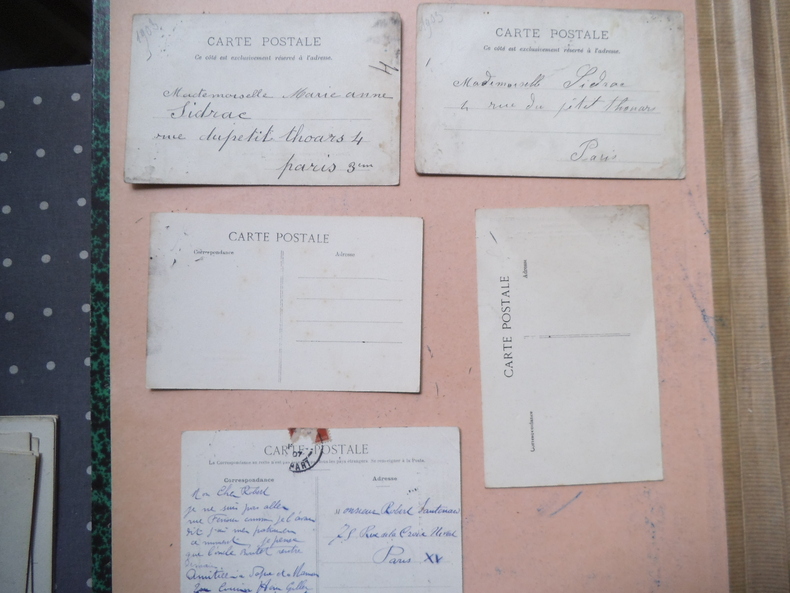 1903
CARTE POSTALE
Ce côté est exclusivement réservé à l'adresse.
4
Mademoiselle Marie anne
Sidrac
rue dupetit thoars 4
paris 3em
1903
CARTE POSTALE
Ce côté est exclusivement réservé à l'adresse.
Mademoiselle Sidrac
4 rue du petit thouars
Paris
CARTE POSTALE
Correspondance
Adresse
CARTE POSTALE
Correspondance
Adresse
CARTE POSTALE
Correspondance
Mon Cher Robert
je ne suis pas allé
me
dit j'ai mes
je pense
que l'oncle rentre
Amitiés à
Adresse
Monsieur Robert
25 Rue de la Croix Nivert
Paris XV